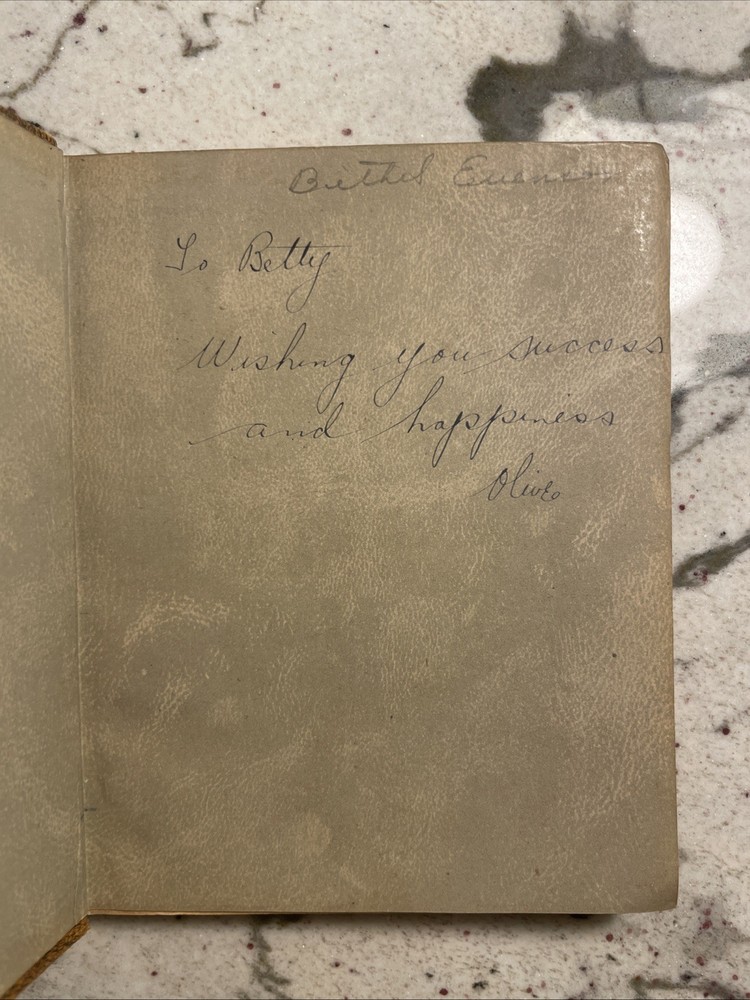 Bethel
To Betty
Wishing you success
and happiness
Olive